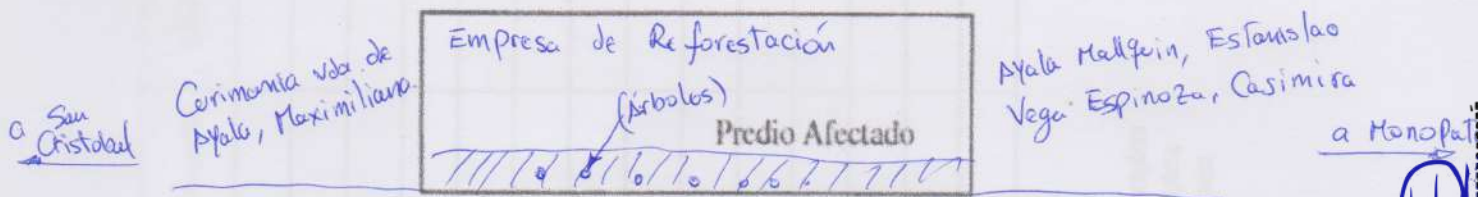 a San
Cristobal
Carimania vda. de
Ayala, Maximiliana.
Empresa de Reforestación
(Árboles)
Predio Afectado
Ayala Mallqui, Estanislao
Vega Espinoza, Casimira
a Monopat